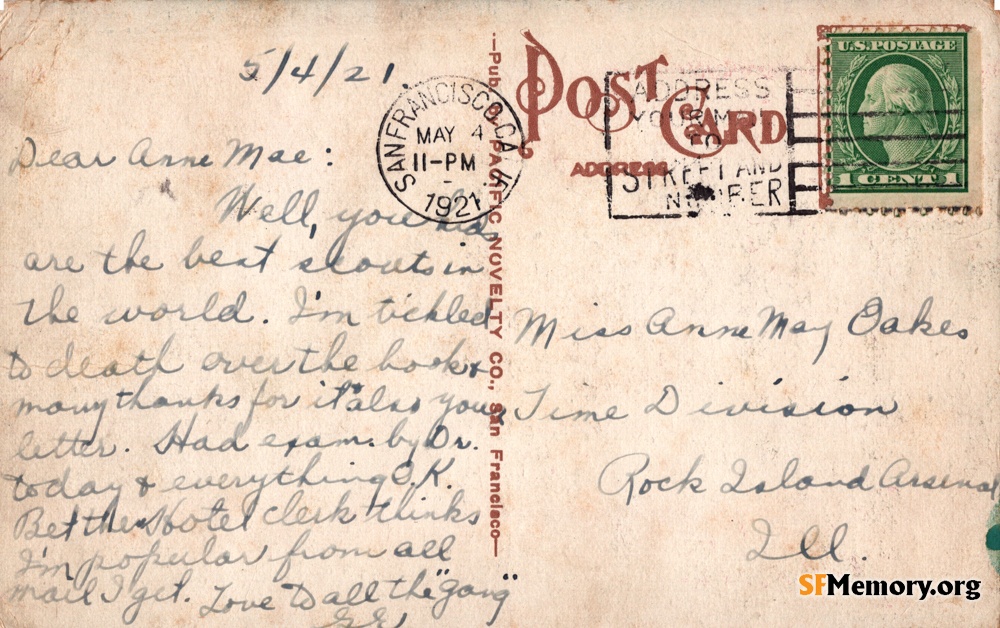 5/4/21.
Dear Anne Mae:
Well, you kids
are the best scouts in
the world. I'm tickled
to death over the book &
many thanks for it also your
letter. Had exam. by Dr.
today & everything O.K.
Bet the Hotel clerk thinks
I'm popular from all
mail I get. Love to all the "gang"
SAN FRANCISCO, CALIF.
MAY 4
11-PM
1921
—Pub. by PACIFIC NOVELTY CO., San Francisco—
POST CARD
ADDRESS
ADDRESS
YOUR MAIL
TO
STREET AND
NUMBER
U.S. POSTAGE
1 CENT 1
Miss Anne May Oakes
Time Division
Rock Island Arsenal
Ill.
SFMemory.org